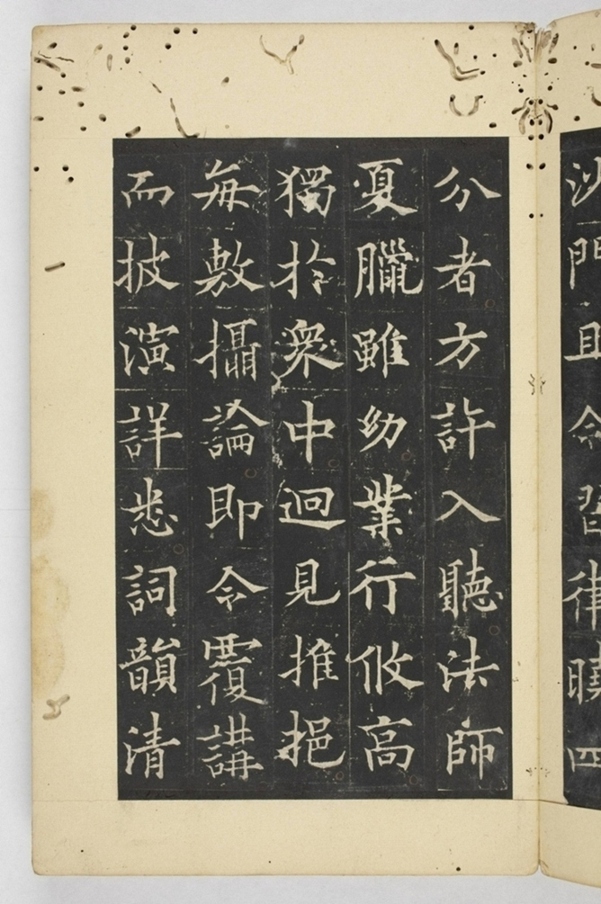 沙門且令習律曉四
分者方許入聽法師
夏臘雖幼業行攸高
獨於衆中迥見推挹
每敷攝論即令覆講
而披演詳悉詞韻清